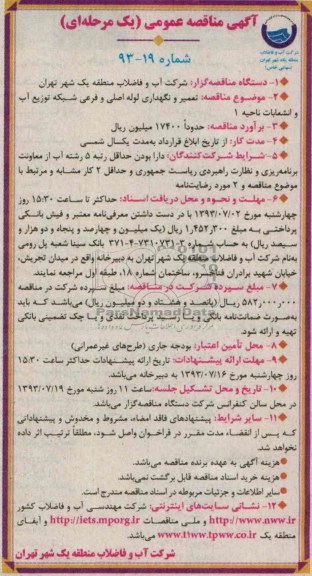 آگهی مناقصه عمومی (یک مرحله‌ای)
شماره ۱۹-۹۳
شرکت آب و فاضلاب
منطقه یک شهر تهران
(سهامی خاص)
۱- دستگاه مناقصه‌گزار: شرکت آب و فاضلاب منطقه یک شهر تهران
۲- موضوع مناقصه: تعمیر و نگهداری لوله اصلی و فرعی شبکه توزیع آب
و انشعابات ناحیه ۱
۳- برآورد مناقصه: حدوداً ۱۷۴۰۰ میلیون ریال
۴- مدت کار: از تاریخ ابلاغ قرارداد به‌مدت یکسال شمسی
۵- شرایط شرکت‌کنندگان: دارا بودن حداقل رتبه ۵ رشته آب از معاونت
برنامه‌ریزی و نظارت راهبردی ریاست جمهوری و حداقل ۲ کار مشابه و مرتبط با
موضوع مناقصه و ۲ مورد رضایت‌نامه
۶- مهلت و نحوه و محل دریافت اسناد: حداکثر تا ساعت ۱۵:۳۰ روز
چهارشنبه مورخ ۱۳۹۳/۰۷/۰۲ با در دست داشتن معرفی‌نامه معتبر و فیش بانکی
پرداختی به مبلغ ۱٫۴۵۲٫۳۰۰ ریال (یک میلیون و چهارصد و پنجاه و دو هزار و
سیصد ریال) به حساب شماره ۳-۷۳۱-۴-۳۷۱ بانک سینا شعبه پل رومی
به‌نام شرکت آب و فاضلاب منطقه یک شهر تهران به دبیرخانه واقع در میدان تجریش،
خیابان شهید برادران فناخسرو، ساختمان شماره ۱۸، طبقه اول مراجعه نمایند.
۷- مبلغ سپرده شرکت در مناقصه: مبلغ سپرده شرکت در مناقصه
۵۸۲٫۰۰۰٫۰۰۰ ریال (پانصد و هشتاد و دو میلیون ریال) می‌باشد که باید
به‌صورت ضمانت‌نامه بانکی و یا رسید پرداخت نقدی و یا چک تضمینی بانکی
تهیه و ارائه شود.
۸- محل تأمین اعتبار: بودجه جاری (طرح‌های غیرعمرانی)
۹- مهلت ارائه پیشنهادات: تاریخ ارائه پیشنهادات حداکثر ساعت ۱۵:۳۰
روز چهارشنبه مورخ ۱۳۹۳/۰۷/۱۶ به دبیرخانه می‌باشد.
۱۰- تاریخ و محل تشکیل جلسه: ساعت ۱۱ روز شنبه مورخ ۱۳۹۳/۰۷/۱۹
در محل سالن کنفرانس شرکت دستگاه مناقصه‌گزار می‌باشد.
۱۱- سایر شرایط: پیشنهادهای فاقد امضاء، مشروط و مخدوش و پیشنهاداتی
که پس از انقضاء مدت مقرر در فراخوان واصل شود، مطلقاً ترتیب اثر داده
نخواهد شد.
هزینه آگهی به عهده برنده مناقصه می‌باشد.
هزینه خرید اسناد مناقصه قابل برگشت نمی‌باشد.
سایر اطلاعات و جزئیات مربوطه در اسناد مناقصه مندرج است.
۱۲- نشانی سایت‌های اینترنتی: شرکت مهندسی آب و فاضلاب کشور
http://www.nww.ir و ملی مناقصات http://iets.mporg.ir و آبفای
منطقه یک www.t1ww.tpww.co.ir می‌باشد.
شرکت آب و فاضلاب منطقه یک شهر تهران